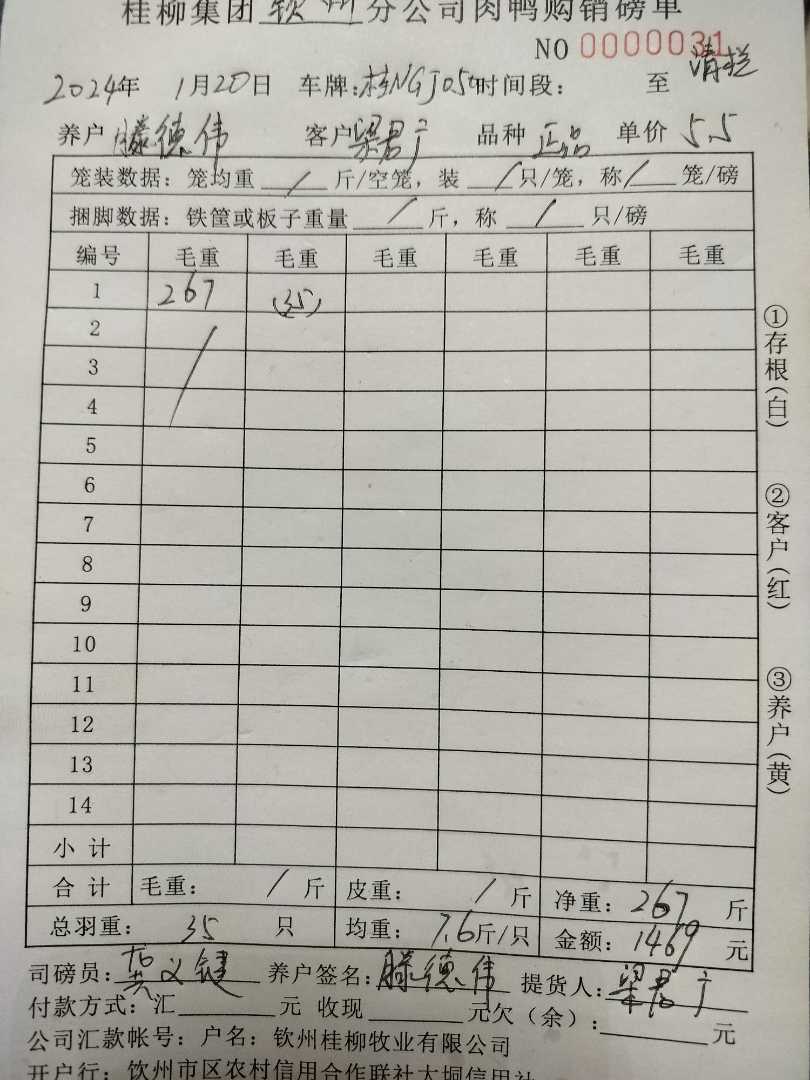 桂柳集团钦州分公司肉鸭购销磅单
NO 0000031
清栏
2024年 1月20日 车牌:桂NGJ050 时间段: 至
养户 滕德伟 客户 梁君广 品种 正品 单价 5.5
笼装数据: 笼均重 / 斤/空笼, 装 / 只/笼, 称 / 笼/磅
捆脚数据: 铁筐或板子重量 / 斤, 称 / 只/磅
编号 毛重 毛重 毛重 毛重 毛重 毛重
1 267 (35)
2 /
3
4
5
6
7
8
9
10
11
12
13
14
小计
合计 毛重: / 斤 皮重: / 斤 净重: 267 斤
总羽重: 35 只 均重: 7.6斤/只 金额: 1469 元
司磅员: 黄义键 养户签名: 滕德伟 提货人: 梁君广
付款方式: 汇 元 收现 元 欠(余): 元
公司汇款帐号: 户名: 钦州桂柳牧业有限公司
开户行: 钦州市区农村信用合作联社大垌信用社
①存根(白)
②客户(红)
③养户(黄)